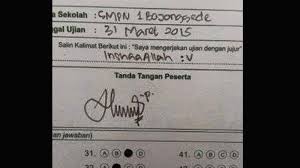 a Sekolah : SMPN 1 Bojonggede
gal Ujian : 31 Maret 2015
Salin Kalimat Berikut ini : "Saya mengerjakan ujian dengan jujur"
InshaaAllah :v
Tanda Tangan Peserta
an jawaban)
31. A B D 41. A B C D